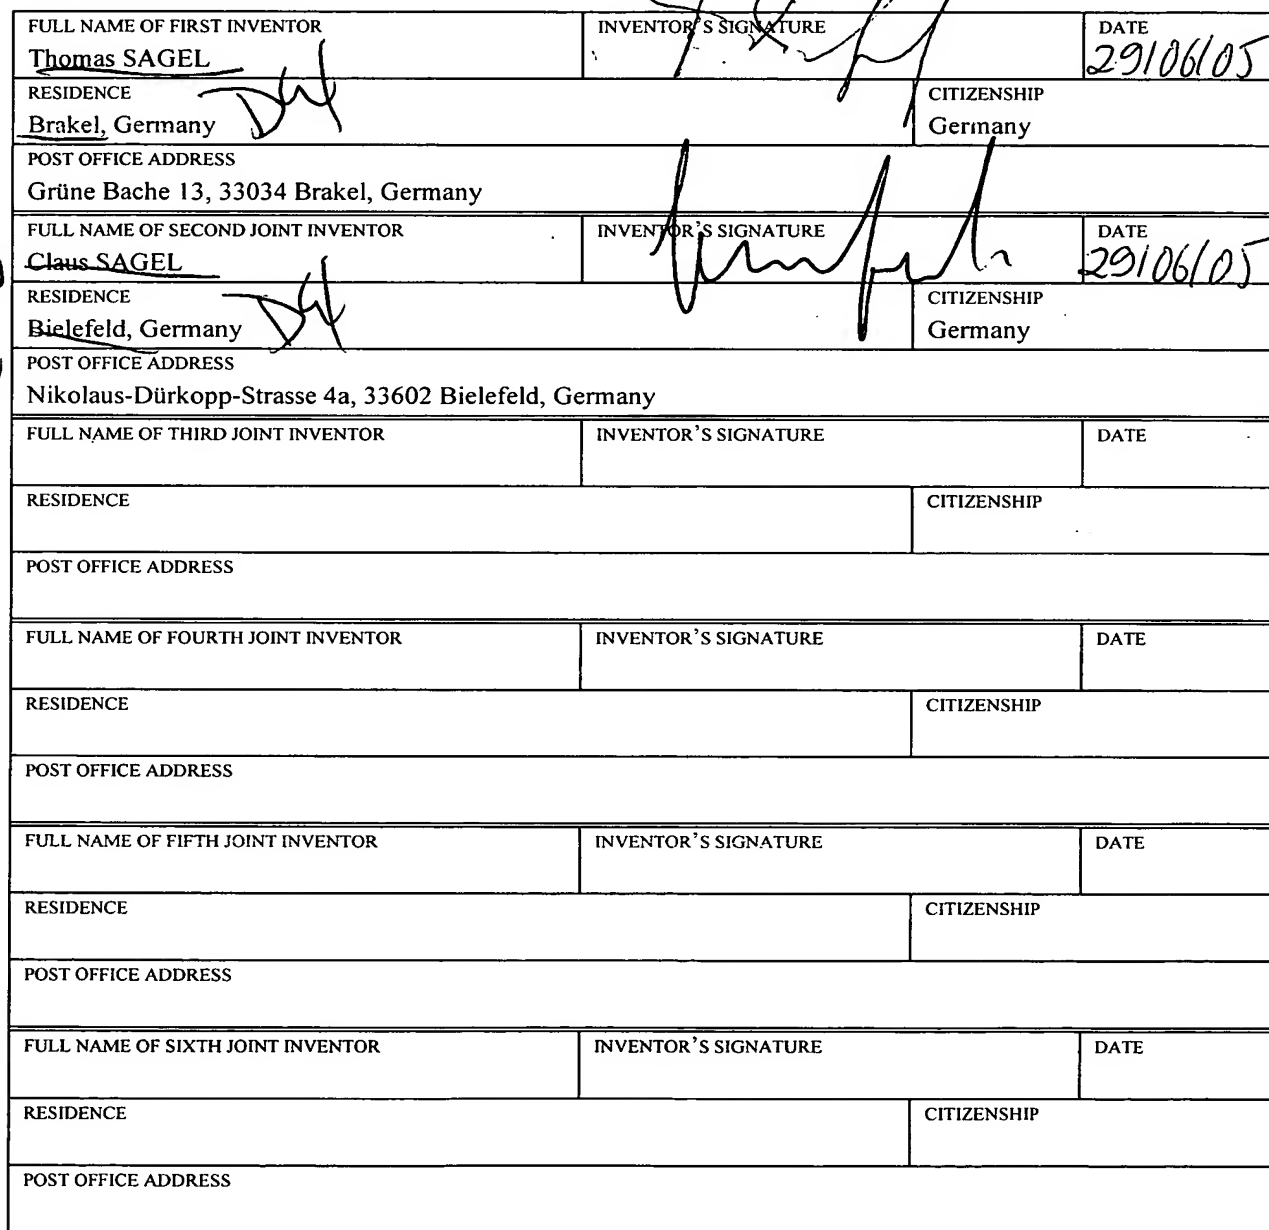 FULL NAME OF FIRST INVENTOR INVENTOR'S SIGNATURE DATE
Thomas SAGEL 29/06/05
RESIDENCE CITIZENSHIP
Brakel, Germany Germany
POST OFFICE ADDRESS
Grüne Bache 13, 33034 Brakel, Germany
FULL NAME OF SECOND JOINT INVENTOR INVENTOR'S SIGNATURE DATE
Claus SAGEL 29/06/05
RESIDENCE CITIZENSHIP
Bielefeld, Germany Germany
POST OFFICE ADDRESS
Nikolaus-Dürkopp-Strasse 4a, 33602 Bielefeld, Germany
FULL NAME OF THIRD JOINT INVENTOR INVENTOR'S SIGNATURE DATE
RESIDENCE CITIZENSHIP
POST OFFICE ADDRESS
FULL NAME OF FOURTH JOINT INVENTOR INVENTOR'S SIGNATURE DATE
RESIDENCE CITIZENSHIP
POST OFFICE ADDRESS
FULL NAME OF FIFTH JOINT INVENTOR INVENTOR'S SIGNATURE DATE
RESIDENCE CITIZENSHIP
POST OFFICE ADDRESS
FULL NAME OF SIXTH JOINT INVENTOR INVENTOR'S SIGNATURE DATE
RESIDENCE CITIZENSHIP
POST OFFICE ADDRESS